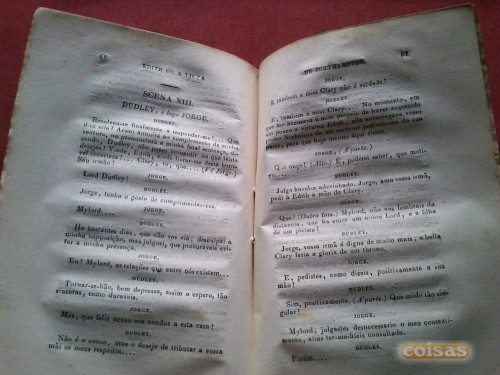 EDITH OU A VIUVA
SCENA XIII.
DUDLEY, e logo JORGE.
DUDLEY.
Resolveu-se finalmente a responder-me!... Que
JORGE.
Lord Dudley!
DUDLEY.
Jorge, tenho o gosto de cumprimentar-vos.
JORGE.
Mylord...
DUDLEY.
Ha bastantes dias, que não vos via; desculpai a
minha supposição, mas julguei, que procuraveis evi-
tar a minha presença.
JORGE.
Eu? Mylord, as relações que entre nós existem...
DUDLEY.
Tornar-se-hão, bem depressa, assim o espero, tão
sinceras, como duraveis.
JORGE.
Mas, que feliz acaso vos conduz a esta casa?
DUDLEY.
Não é o acaso, mas o desejo de tributar a vossa
mãi os meus respeitos....
DE SOUTHAMPTON.
JORGE.
E tambem a miss Clary, não é verdade?
DUDLEY.
E, tambem a miss Clary.... No momento, em
para que hoje aqui
JORGE.
Que ouço? (Alto.) E, poderei saber, que moti-
DUDLEY.
Julgo haveba adevinhado. Jorge, amo vossa irmã,
pedi a Edith a mão de Clary.
JORGE.
Que! (Outro tom.) Mylord, não vos lembrais da
distancia, que ha entre um nobre Lord, e a filha
de um
DUDLEY.
Jorge, vossa irmã é digna de muito mais, a bella
Clary faria a gloria de um throno.
JORGE.
E, pedistes, como dizeis, positivamente a sua
mão?
DUDLEY.
Sim, positivamente. (A' parte.) Que modo tão sin-
gular!
JORGE.
Mylord, julgastes desnecessario o meu consenti-
mento, aliás ter-me-hieis consultado.
DUDLEY.
Porém....
coisas